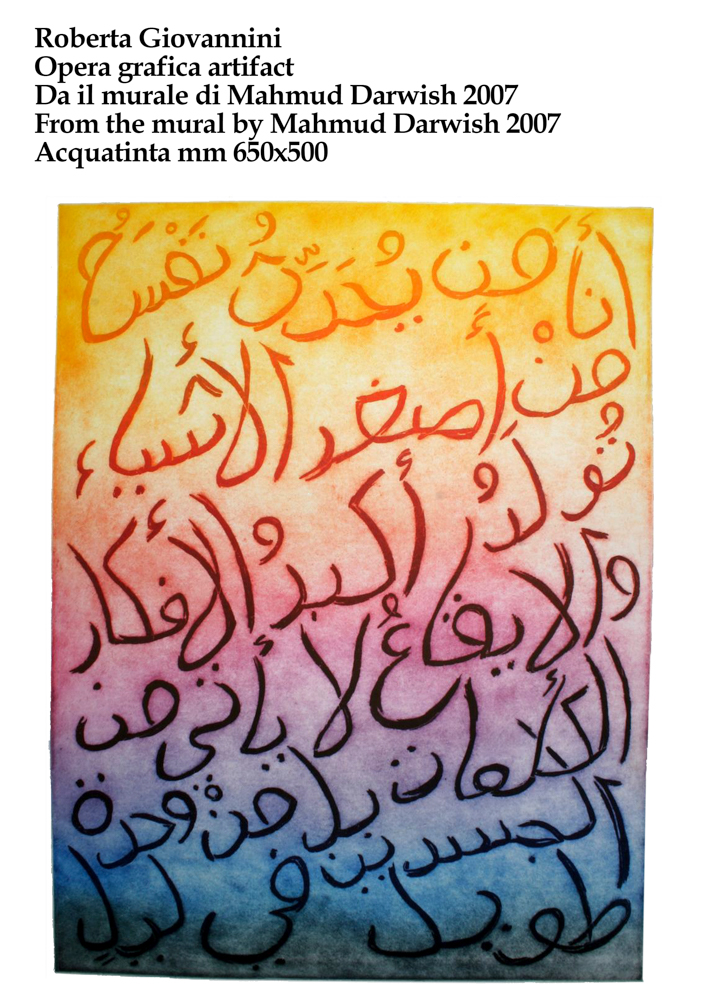 Roberta Giovannini
Opera grafica artifact
Da il murale di Mahmud Darwish 2007
From the mural by Mahmud Darwish 2007
Acquatinta mm 650x500
أنا من يُحَدِّثُ نَفْسَهُ
منْ أصغر الأشياء
تُولدُ أكبرُ الأفكار
والايقاعُ لا يأتي من
الكلمات بل من وحدة
الجسدين في ليل
طويل